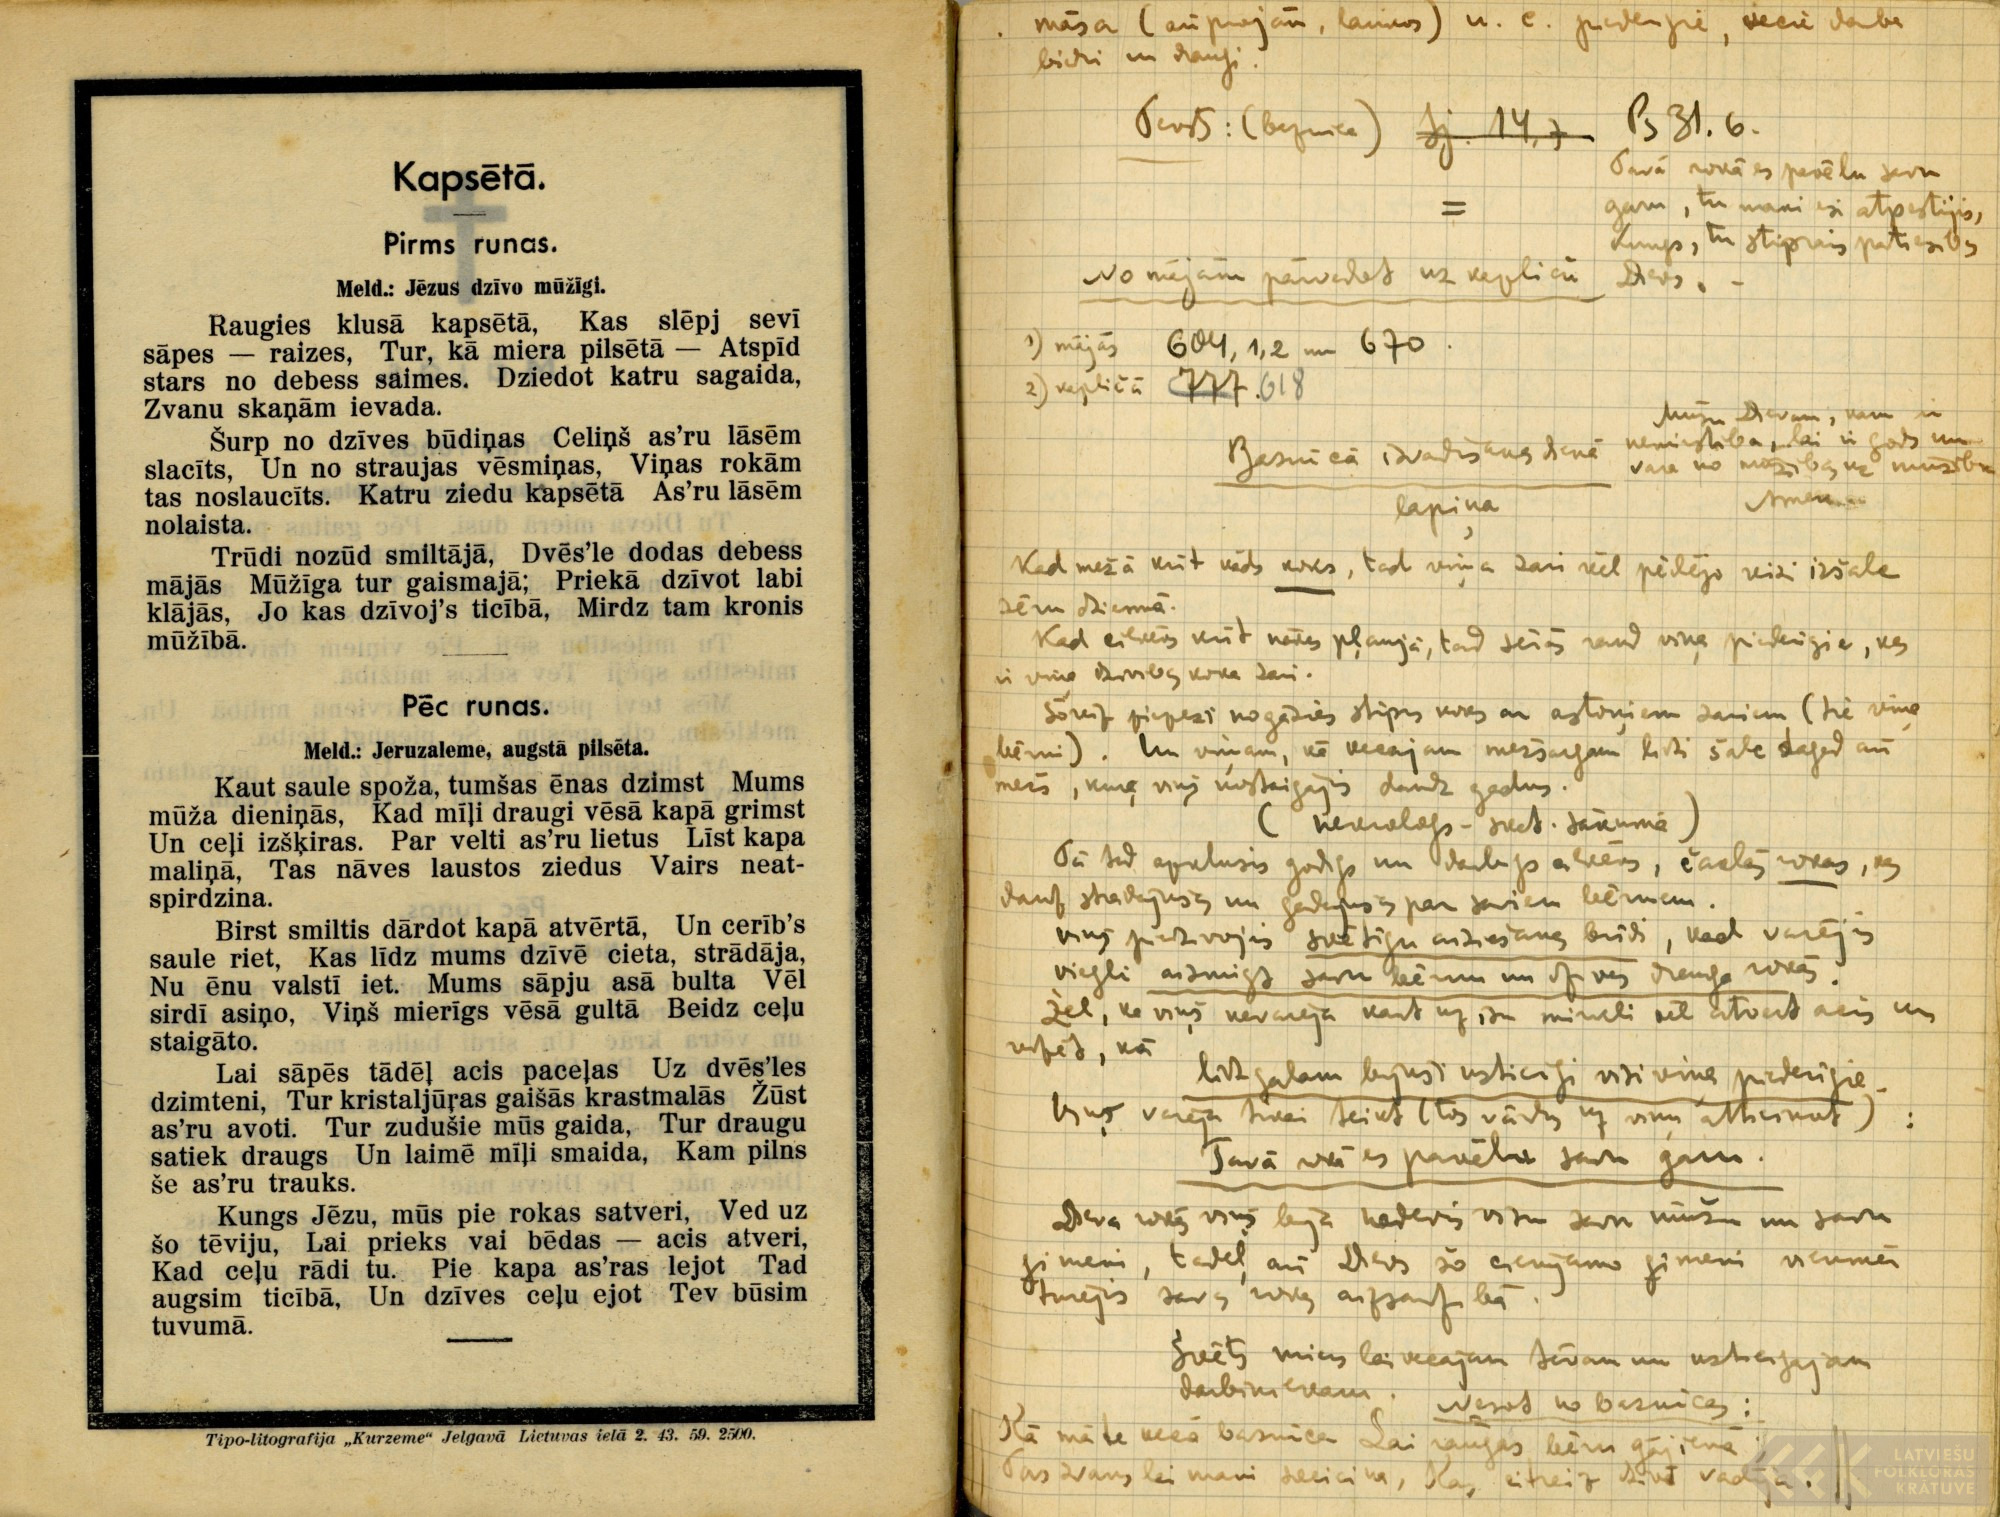 Kapsētā.
Pirms runas.
Meld.: Jēzus dzīvo mūžīgi.
Raugies klusā kapsētā, Kas slēpj sevī
sāpes — raizes, Tur, kā miera pilsētā — Atspīd
stars no debess saimes. Dziedot katru sagaida,
Zvanu skaņām ievada.
Šurp no dzīves būdiņas Celiņš as'ru lāsēm
slacīts, Un no straujas vēsmiņas, Viņas rokām
tas noslaucīts. Katru ziedu kapsētā As'ru lāsēm
nolaista.
Trūdi nozūd smiltājā, Dvēs'le dodas debess
mājās Mūžīga tur gaismajā; Priekā dzīvot labi
klājās, Jo kas dzīvoj's ticībā, Mirdz tam kronis
mūžībā.
Pēc runas.
Meld.: Jeruzaleme, augstā pilsēta.
Kaut saule spoža, tumšas ēnas dzimst Mums
mūža dieniņās, Kad mīļi draugi vēsā kapā grimst
Un ceļi izšķiras. Par velti as'ru lietus Līst kapa
maliņā, Tas nāves laustos ziedus Vairs neat-
spirdzina.
Birst smiltis dārdot kapā atvērtā, Un cerīb's
saule riet, Kas līdz mums dzīvē cieta, strādāja,
Nu ēnu valstī iet. Mums sāpju asā bulta Vēl
sirdī asiņo, Viņš mierīgs vēsā gultā Beidz ceļu
staigāto.
Lai sāpēs tādēļ acis paceļas Uz dvēs'les
dzimteni, Tur kristaljūŗas gaišās krastmalās Žūst
as'ru avoti. Tur zudušie mūs gaida, Tur draugu
satiek draugs Un laimē mīļi smaida, Kam pilns
še as'ru trauks.
Kungs Jēzu, mūs pie rokas satveri, Ved uz
šo tēviju, Lai prieks vai bēdas — acis atveri,
Kad ceļu rādi tu. Pie kapa as'ras lejot Tad
augsim ticībā, Un dzīves ceļu ejot Tev būsim
tuvumā.
Tipo-litografija „Kurzeme“ Jelgavā Lietuvas ielā 2. 43. 59. 2500.
māsa (arī projām, laukos) u. c. piederīgie, vecie darba
biedri un draugi.
(baznīcā) Jj. 14,7 Ps 31. 6.
Tavā rokā es pavēlu savu
garu, tu mani esi atpestījis,
Kungs, tu stiprais patiesības
Dievs. -
=
No mājām pārvedot uz kapliču
1) mājās 604, 1,2 un 670.
2) kapličā 777. 618
Mūžu Dievam, kam ir
nemirstība, lai ir gods un
vara no mūžības uz mūžību
Amen
Baznīcā izvadīšanas dienā
lapiņa
Kad mežā krīt kāds koks, tad viņa zari vēl pēdējo reizi iešalc
sēru dziesmā.
Kad cilvēks krīt nāves pļaujā, tad sērās raud viņa piederīgie, kas
ir viņa dzīvības koka zari.
Šoreiz piepeši nogāzies stiprs koks ar astoņiem zariem (tie viņa
bērni). Un viņam, kā vecajam mežsargam līdzi šalc tagad arī
mežs, kuŗā viņš nostaigājis daudz gadus.
(nekrologs - skat. sākumā)
Tā tad apklusis godīgs un darbīgs cilvēks, čaklās rokas, kas
daudz strādājušas un gādājušas par saviem bērniem.
Viņš piedzīvojis svētīgu aiziešanas brīdi, kad varējis
viegli aizmigt savu bērnu un dzīves drauga rokās.
Žēl, ka viņš nevarēja kaut uz īsu mirkli vēl atvērt acis un
redzēt, kā
līdz galam bijuši uzticīgi visi viņa piederīgie.
Viņš varēja tikai teikt (tos vārdus uz viņu attiecinot) :
Tavā rokā es pavēlu savu garu.
Dieva rokās viņš bija nodevis visu savu mūžu un savu
ģimeni, tādēļ arī Dievs šo cienījamo ģimeni vienmēr
turējis savas rokas aizsardzībā.
Svēts miers lai vecajam tēvam un uzticīgajam
darbiniekam. Nesot no baznīcas:
Kā māte vecā baznīca Lai raugās bērnu gājienā
Tas zvans lai mani sveicina, Kas citreiz dzīvē vadīja.
LATVIEŠU
FOLKLORAS
KRĀTUVE